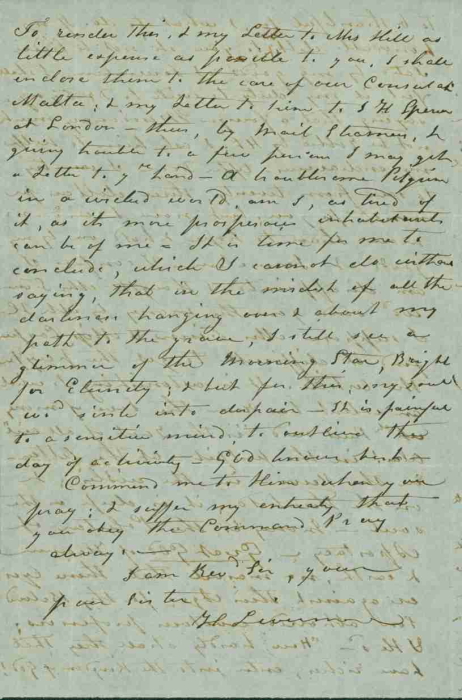 To render this, & my Letter to Mrs Hill as
little expense as possible to you, I shall
inclose them to the care of our Consul at
Malta; & my Letter to him to J H
at London – thus, by Mail Steamer, &
giving trouble to a few persons I may get
a Letter to yr hand – A troublesome Pilgrim
in a wicked world, am I, as tired of
it, as its more prosperous inhabitants
can be of me – It is time for me to
conclude, which I cannot do without
saying, that in the midst of all the
darkness hanging over & about my
path to the grave, I still see a
glimmer of the Morning Star, Bright
for Eternity; & but for this, my soul
wod sink into despair – It is painful
to a sensitive mind, to outlive the
day of activity – God knows best –
Commend me to Him when you
pray; & suffer my entreaty that
you obey the Command, Pray
always –
I am Revd Sir, your
poor Sister
H Livermore